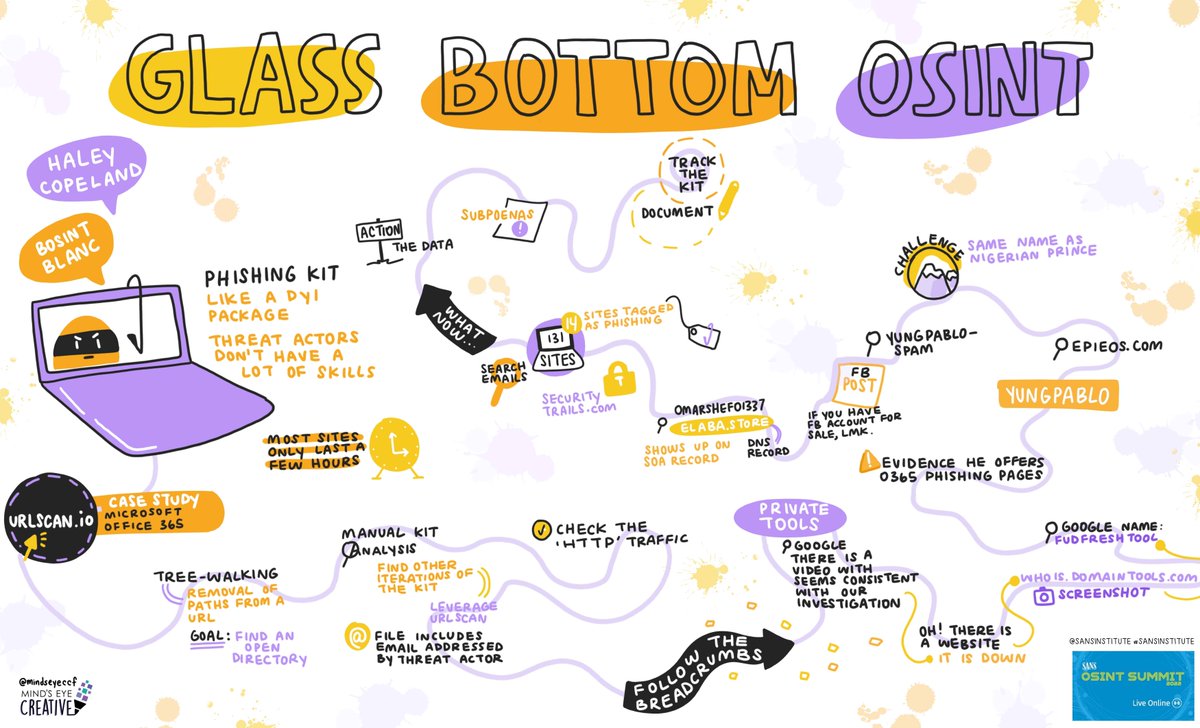 GLASS BOTTOM OSINT
HALEY
COPELAND
BOSINT
BLANC
PHISHING KIT
LIKE A DYI
PACKAGE
THREAT ACTORS
DON'T HAVE A
LOT OF SKILLS
MOST SITES
ONLY LAST A
FEW HOURS
URLSCAN.io
CASE STUDY
MICROSOFT
OFFICE 365
TREE-WALKING
REMOVAL OF
PATHS FROM A
URL
GOAL: FIND AN
OPEN
DIRECTORY
MANUAL KIT
ANALYSIS
FIND OTHER
ITERATIONS OF
THE KIT
LEVERAGE
URLSCAN
@ FILE INCLUDES
EMAIL ADDRESSED
BY THREAT ACTOR
CHECK THE
'HTTP' TRAFFIC
FOLLOW THE
BREADCRUMBS
PRIVATE
TOOLS
GOOGLE
THERE IS A
VIDEO WITH
SEEMS CONSISTENT
WITH OUR
INVESTIGATION
OH! THERE IS
A WEBSITE
IT IS DOWN
WHO IS.DOMAINTOOLS.COM
SCREENSHOT
GOOGLE NAME:
FUDFRESHTOOL
EVIDENCE HE OFFERS
O365 PHISHING PAGES
YUNGPABLO
EPIEOS.COM
CHALLENGE
SAME NAME AS
NIGERIAN PRINCE
YUNGPABLO-
SPAM
FB
POST
IF YOU HAVE
FB ACCOUNT FOR
SALE, LMK.
OMARSHEFO1337
ELABA.STORE
SHOWS UP ON
SOA RECORD
DNS
RECORD
SECURITY
TRAILS.COM
14
SITES TAGGED
AS PHISHING
131
SITES
SEARCH
EMAILS
WHAT
NOW...
ACTION
THE DATA
SUBPOENAS
!
TRACK
THE
KIT
DOCUMENT
@mindseyeccf
MIND'S EYE
CREATIVE
@SANSINSTITUTE #SANSINSTITUTE
SANS
OSINT SUMMIT
2022
Live Online